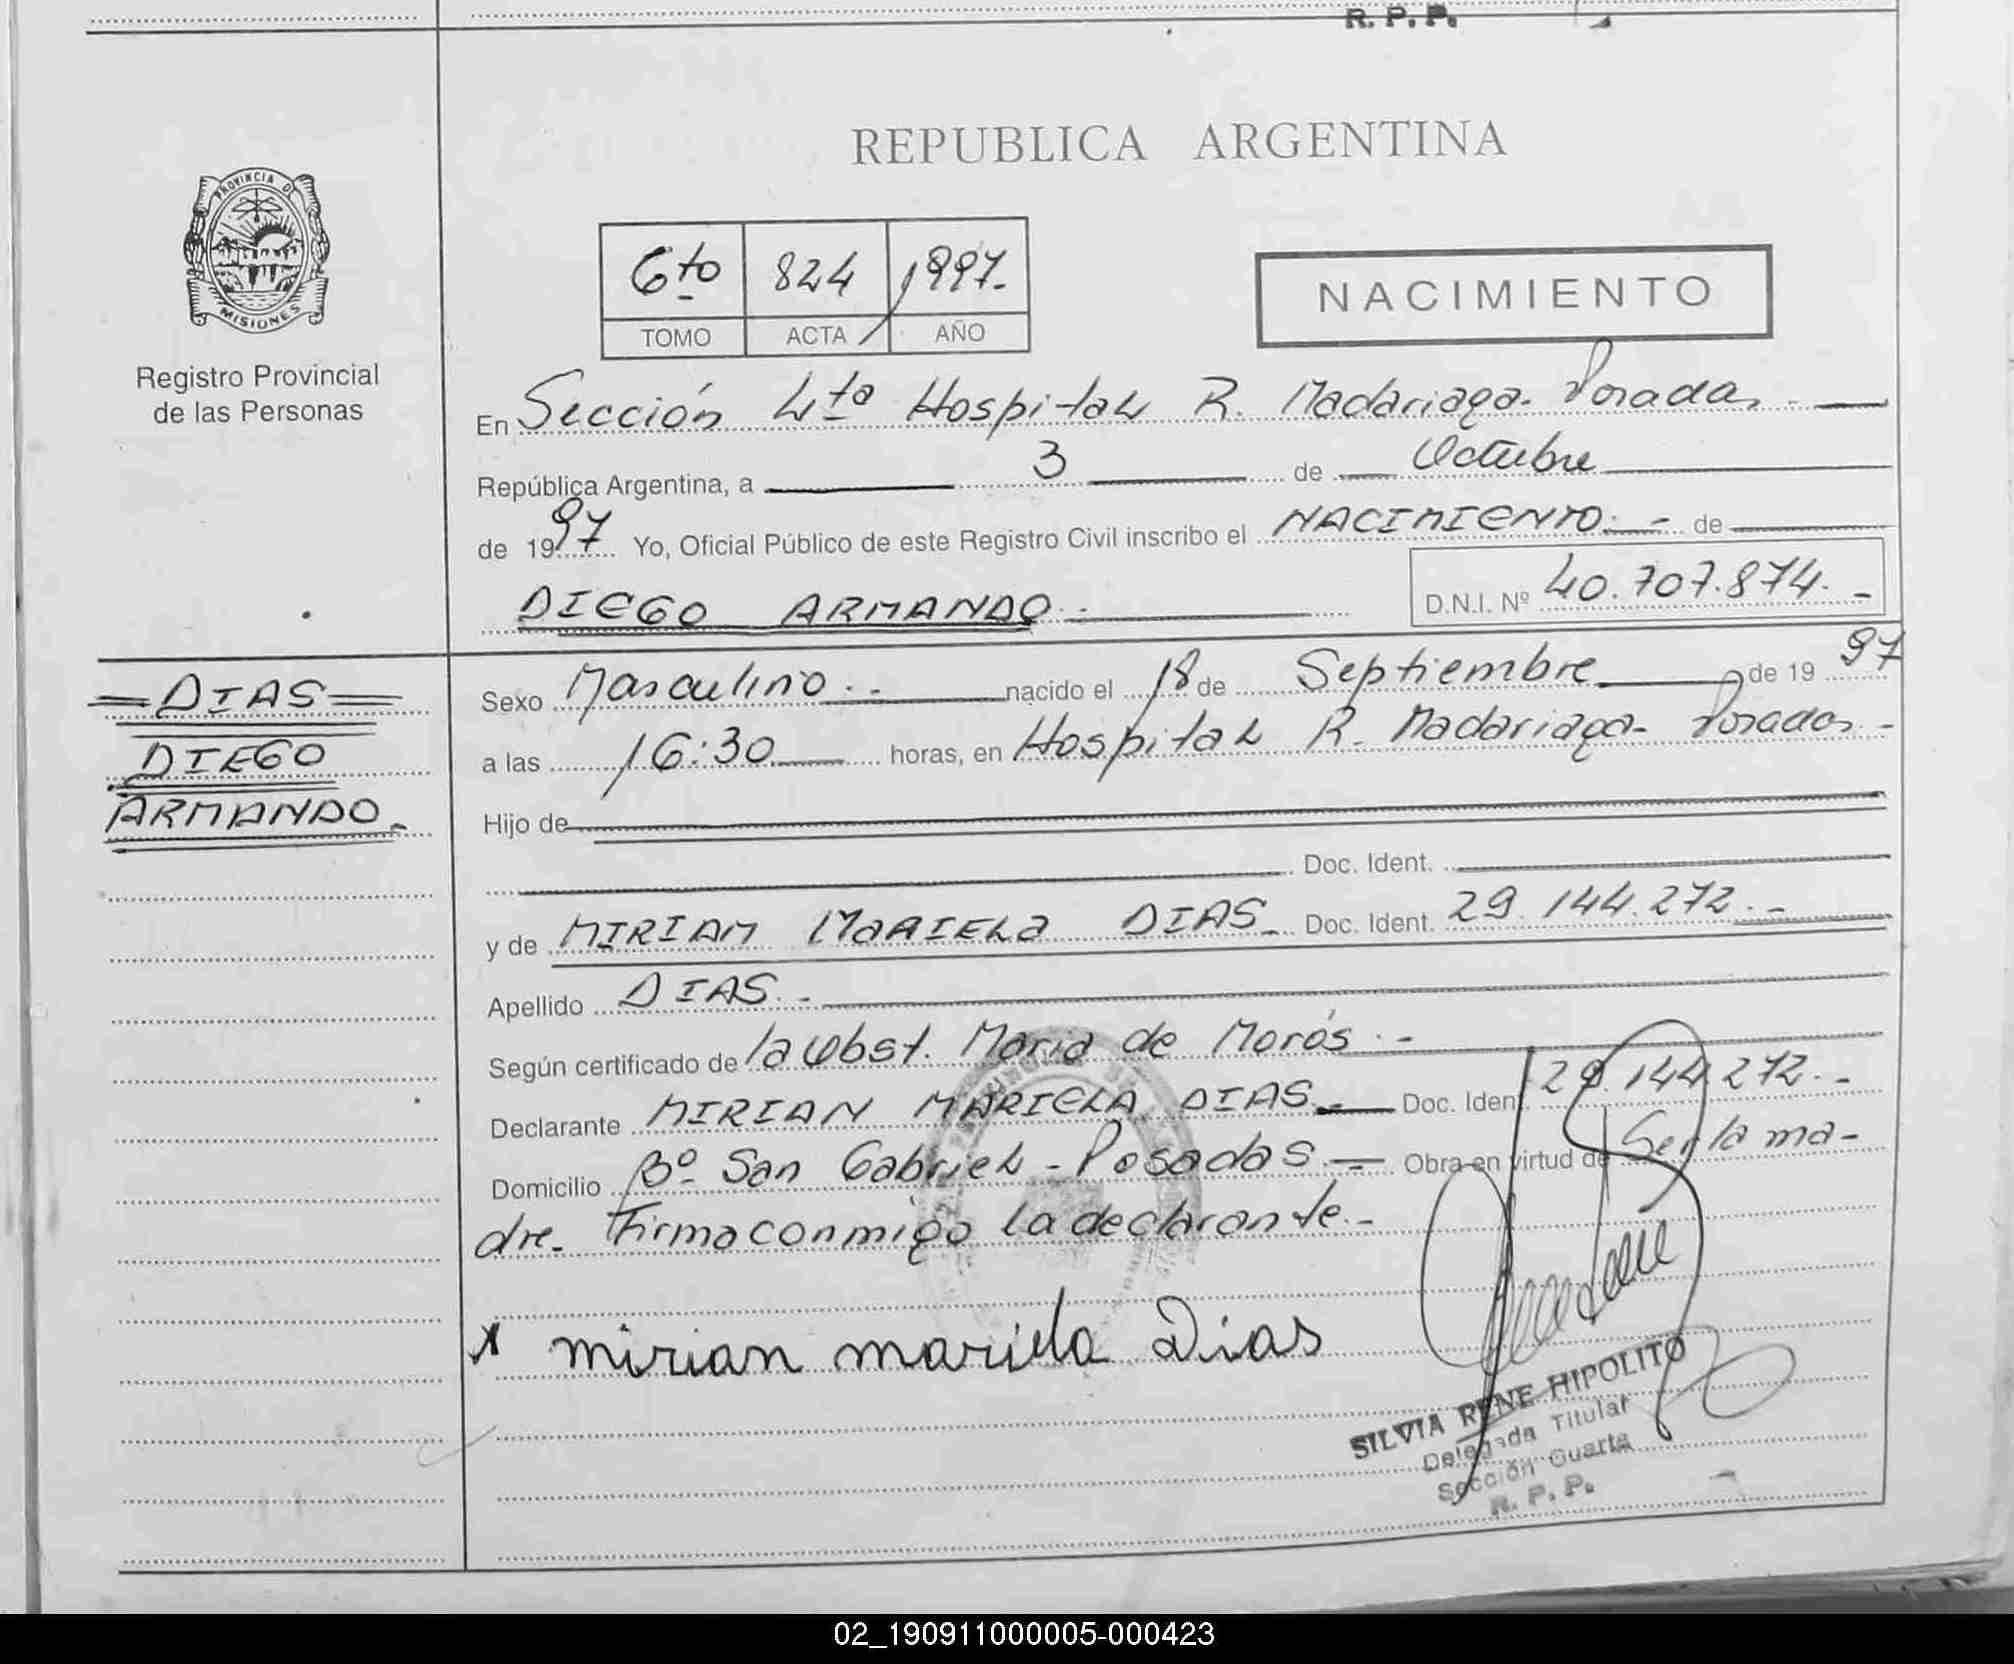 R. P. P.
REPUBLICA ARGENTINA
PROVINCIA DE
MISIONES
Registro Provincial
de las Personas
6to 824 1997.-
TOMO ACTA AÑO
NACIMIENTO
En Sección 4ta Hospital R. Madariaga. Posadas.-
República Argentina, a 3 de Octubre
de 1997 Yo, Oficial Público de este Registro Civil inscribo el NACIMIENTO.- de
DIEGO ARMANDO.- D.N.I. Nº 40.707.874.-
=DIAS=
DIEGO
ARMANDO.-
Sexo Masculino.- nacido el 18 de Septiembre de 1997
a las 16:30 horas, en Hospital R. Madariaga- Posadas.-
Hijo de
Doc. Ident.
y de MIRIAM MARIELA DIAS.- Doc. Ident. 29.144.272.-
Apellido DIAS.-
Según certificado de la Obst. Maria de Morós.-
Declarante MIRIAN MARIELA DIAS.- Doc. Ident. 29.144.272.-
Domicilio Bº San Gabriel - Posadas.- Obra en virtud de Ser la ma-
dre- Firma conmigo la declarante.-
x mirian mariela Dias
SILVIA RENE HIPOLITO
Delegada Titular
Sección Cuarta
R. P. P.
02_190911000005-000423